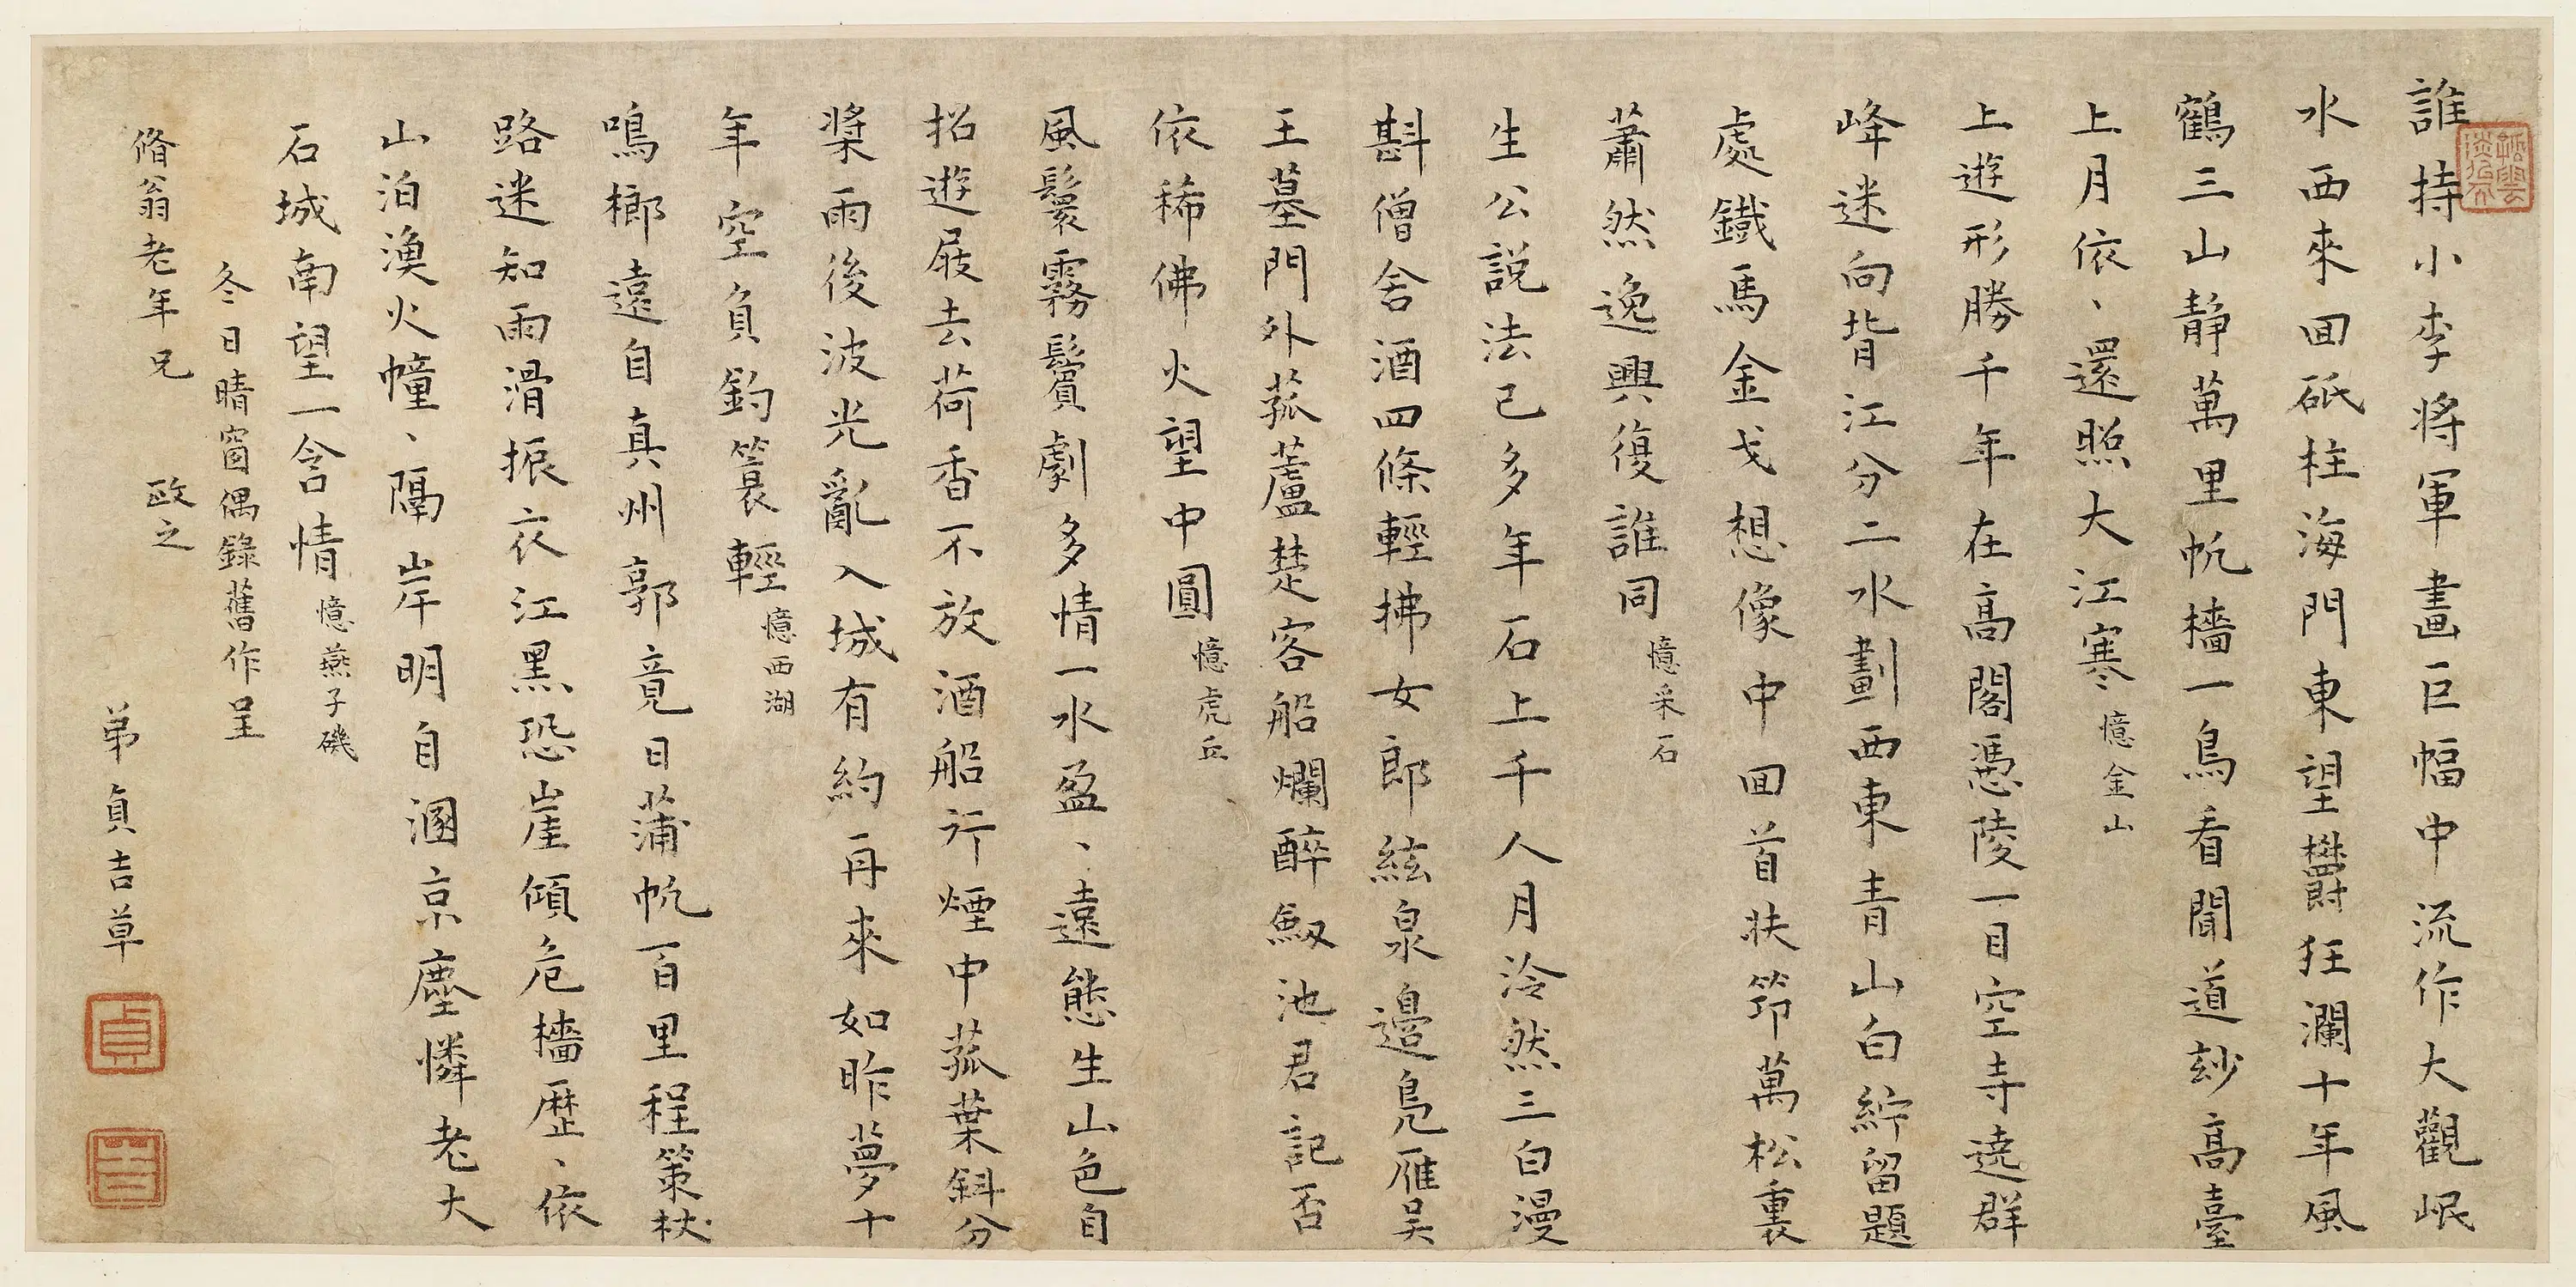 誰持小李將軍畫巨幅中流作大觀岷
水西來回砥柱海門東望鬱狂瀾十年風
鶴三山靜萬里帆檣一鳥看聞道玅高臺
上月依、還照大江寒憶金山
上遊形勝千年在高閣憑陵一目空寺遶群
峰迷向背江分二水劃西東青山白紵留題
處鐵馬金戈想像中回首扶筇萬松裏
蕭然逸興復誰同憶采石
生公說法已多年石上千人月泠然三白漫
斟僧舍酒四條輕拂女郎絃泉邊鳧雁吴
王墓門外菰蘆楚客船爛醉劔池君記否
依稀佛火望中圓憶虎丘
風鬟霧鬢劇多情一水盈、遠態生山色自
招遊屐去荷香不放酒船行煙中菰葉斜分
槳雨後波光亂入城有約再來如昨夢十
年空負釣簑輕憶西湖
鳴榔遠自真州郭竟日蒲帆百里程策杖
路迷知雨滑振衣江黑恐崖傾危檣歷、依
山泊漁火幢、隔岸明自溷京塵憐老大
石城南望一含情憶燕子磯
冬日晴窗偶錄舊作呈
脩翁老年兄 政之
弟貞吉草
貞
吉